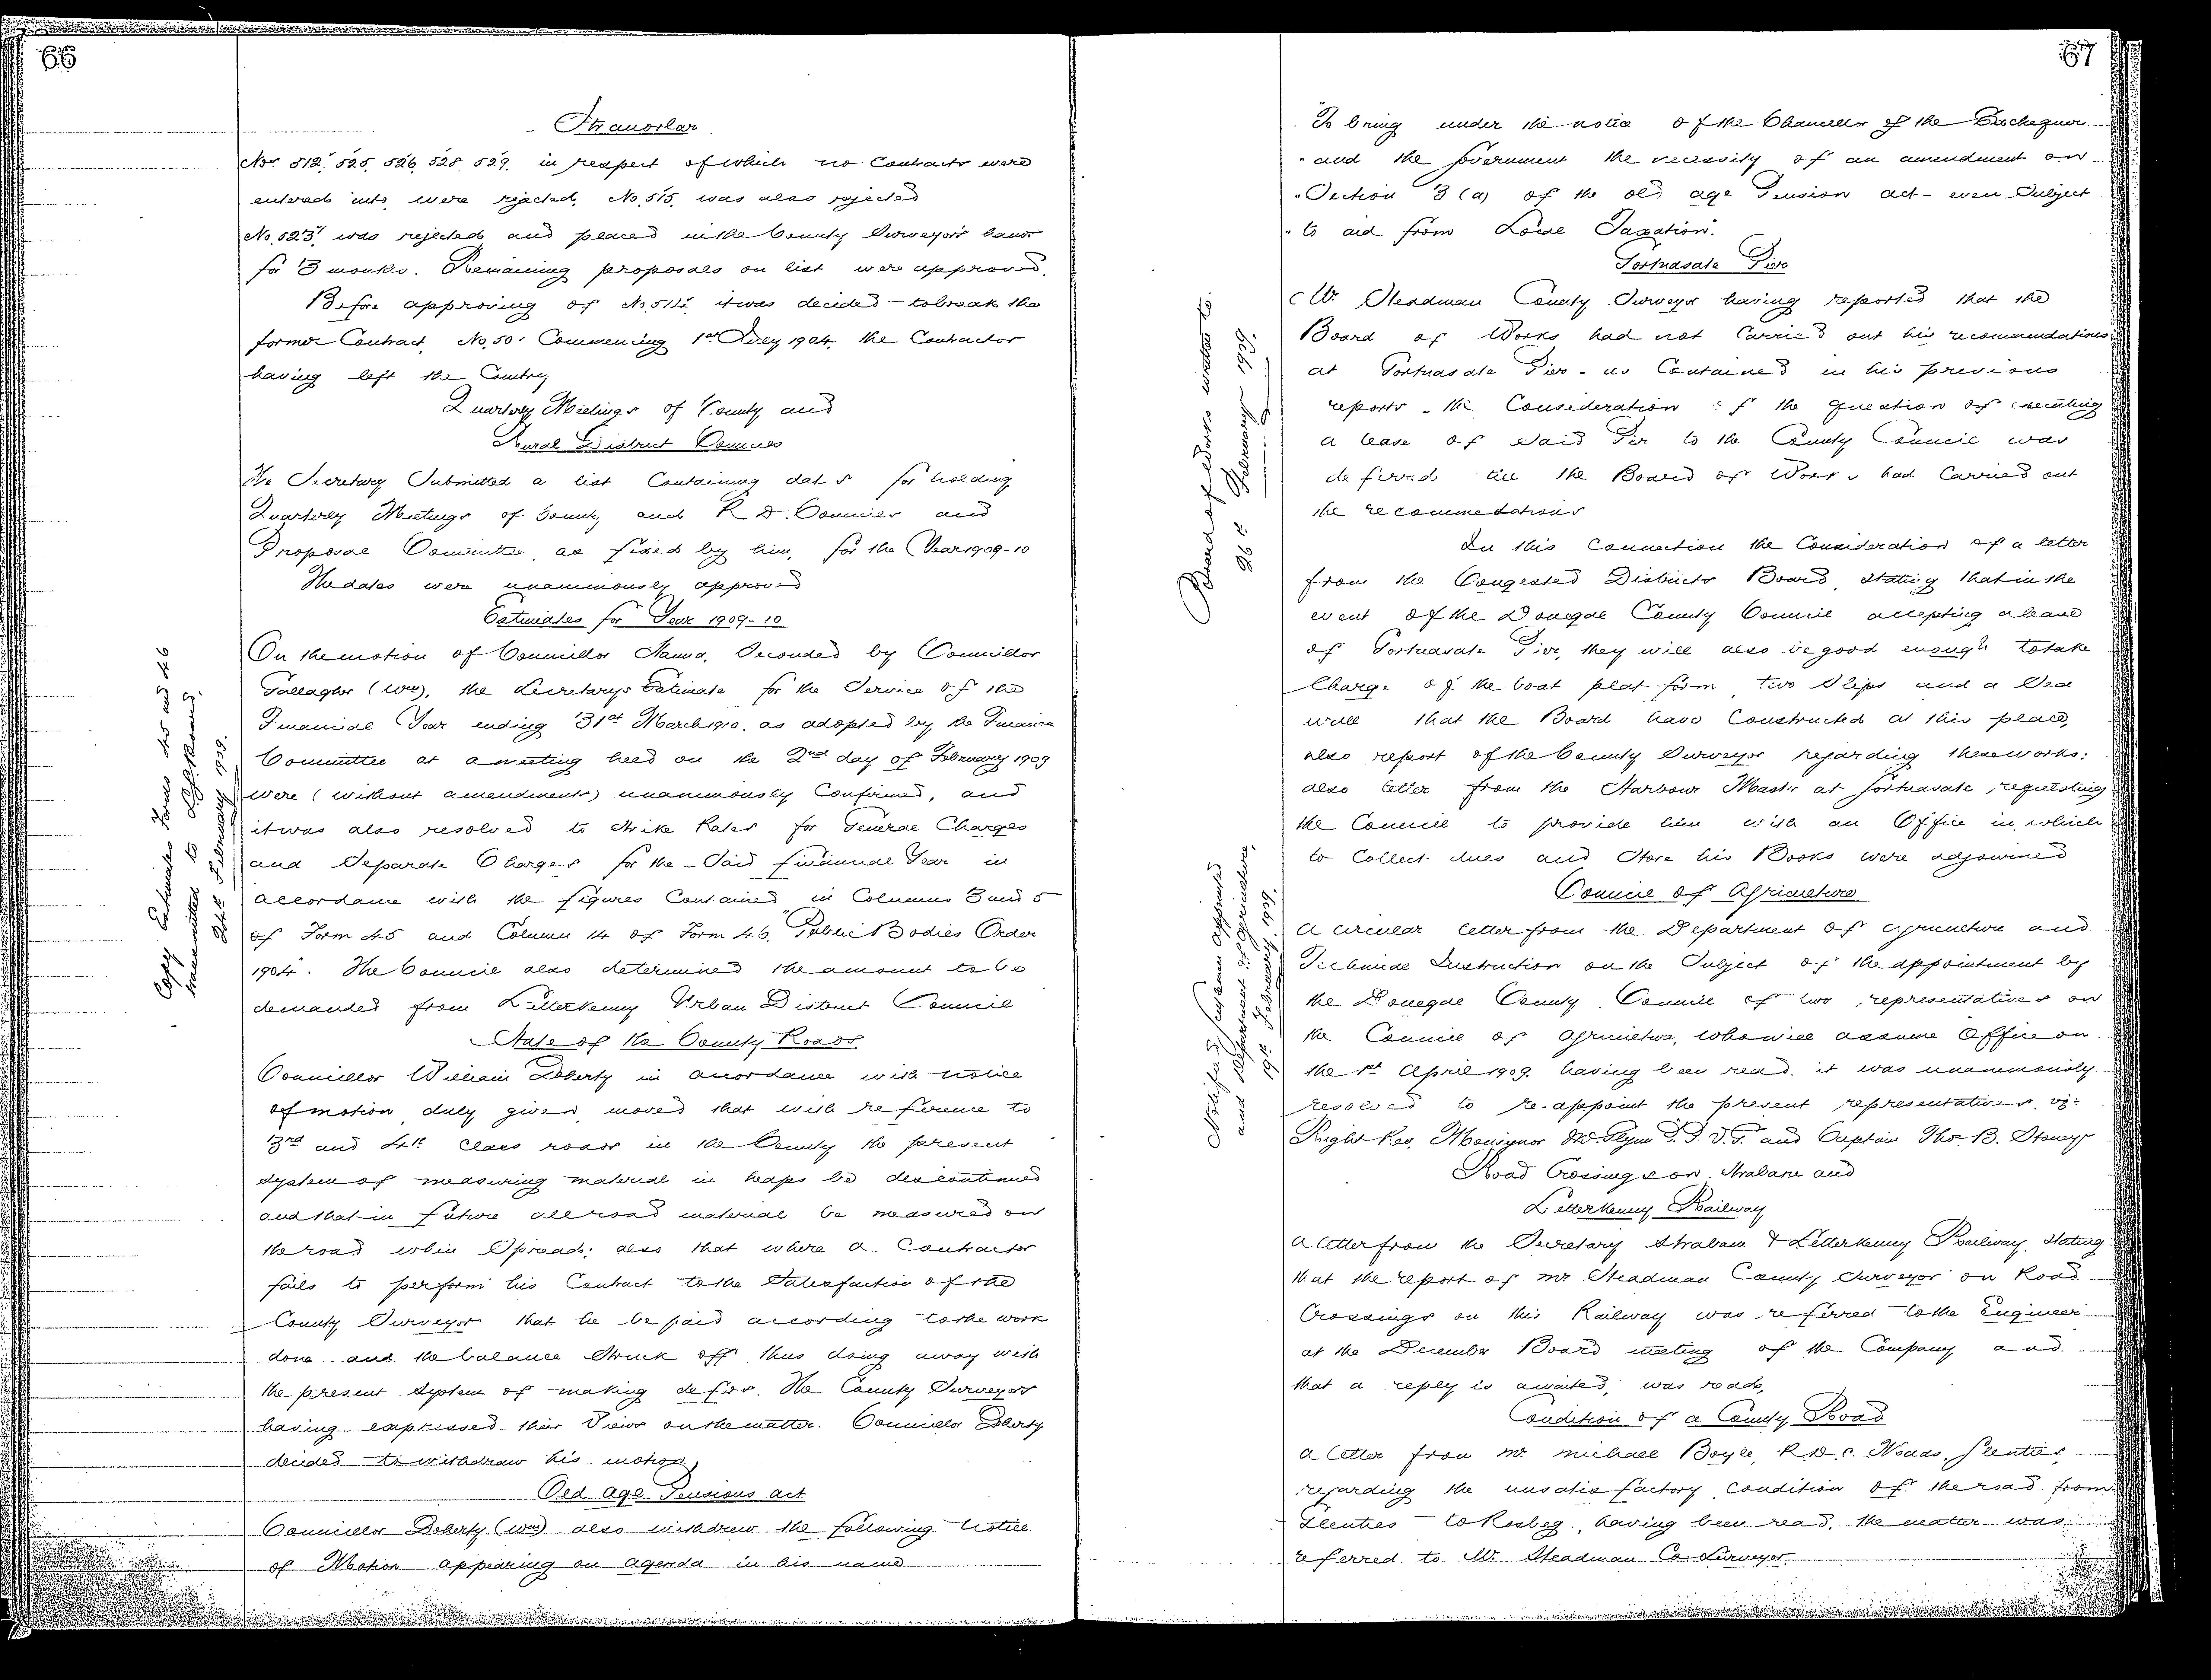 66
Stranorlar
Nos. 512, 525, 526, 528, 529, in respect of which no Contracts were
entered into, were rejected, No. 515, was also rejected
No. 523, was rejected and placed in the County Surveyor's hands
for 3 months. Remaining proposals on list were approved.
Before approving of No. 514, it was decided to break the
former Contract, No. 50, Commencing 1st July 1904, the Contractor
having left the Country
Quarterly Meetings of County and
Rural District Councils
The Secretary Submitted a list Containing dates for holding
Quarterly Meetings of County and R.D. Councils and
Proposal Committee, as fixed by him, for the Year 1909-10
The dates were unanimously approved
Estimates for Year 1909-10
On the motion of Councillor Hanna, Seconded by Councillor
Gallagher (Wm), the Secretarys Estimate for the Service of the
Financial Year ending 31st March 1910, as adopted by the Finance
Committee at a meeting held on the 2nd day of February 1909
were (without amendments) unanimously Confirmed, and
it was also resolved to strike Rates for General Charges
and Separate Charges for the Said financial Year in
accordance with the figures Contained in Columns 3 and 5
of Form 45 and Column 14 of Form 46, Public Bodies Order
1904. The Council also determined the amount to be
demanded from Letterkenny Urban District Council
Copy Estimates Forms 45 and 46
transmitted to
24th February 1909.
State of the County Roads
Councillor William Doherty in accordance with notice
of motion duly given, moved that with reference to
3rd and 4th Class roads in the County the present
system of measuring material in heaps be discontinued
and that in future all road material be measured on
the road when Spread; also that where a Contractor
fails to perform his Contract to the Satisfaction of the
County Surveyor that he be paid according to the work
done and the balance Struck off, thus doing away with
the present System of making defrs. The County Surveyors
having expressed their Views on the matter. Councillor Doherty
decided to withdraw his motion,
Old Age Pensions Act
Councillor Doherty (Wm) also withdrew the following Notice
of Motion appearing on agenda in his name
67
"To bring under the notice of the Chancellor of the Exchequer
"and the Government the necessity of an amendment on
"Section 3 (a) of the old age Pension act - even Subject
"to aid from Local Taxation".
Portnasale Pier
Mr. Steadman County Surveyor having reported that the
Board of Works had not Carried out his recommendations
at Portnasale Pier - as Contained in his previous
reports - the Consideration of the question of executing
a lease of said Pier to the County Council was
deferred till the Board of Works had Carried out
the recommedations
Board of Works written to.
26th February 1909.
In this Connection the Consideration of a letter
from the Congested Districts Board, stating that in the
event of the Donegal County Council accepting a lease
of Portnasale Pier, they will also be good enough to take
Charge of the boat plat-form, two Slips and a Sea
wall that the Board have Constructed at this place,
also report of the County Surveyor regarding these works:
also letter from the Harbour Master at Portnasale, requesting
the Council to provide him with an Office in which
to Collect dues and Store his Books were adjourned
Council of Agriculture
A circular letter from the Department of Agriculture and
Technical Instruction on the Subject of the appointment by
the Donegal County Council of two representatives on
the Council of Agriculture, who will assume Office on
the 1st April 1909, having been read, it was unanimously
resolved to re-appoint the present representatives, viz:
Right Rev. Monsignor McGlynn P.P.V.G. and Captain Thos. B. Stoney
Notified Gentlemen appointed
and Department of Agriculture,
19th February 1909.
Road Crossings on Strabane and
Letterkenny Railway
A letter from the Secretary Strabane & Letterkenny Railway, stating
that the report of Mr Steadman County Surveyor on Road
Crossings on this Railway was referred to the Engineer
at the December Board meeting of the Company and
that a reply is awaited, was read,
Condition of a County Road
A letter from Mr. Michael Boyle, R.D.C. Glenties,
regarding the unsatisfactory condition of the road from
Glenties to Rosbeg, having been read, the matter was
referred to Mr. Steadman Co. Surveyor.